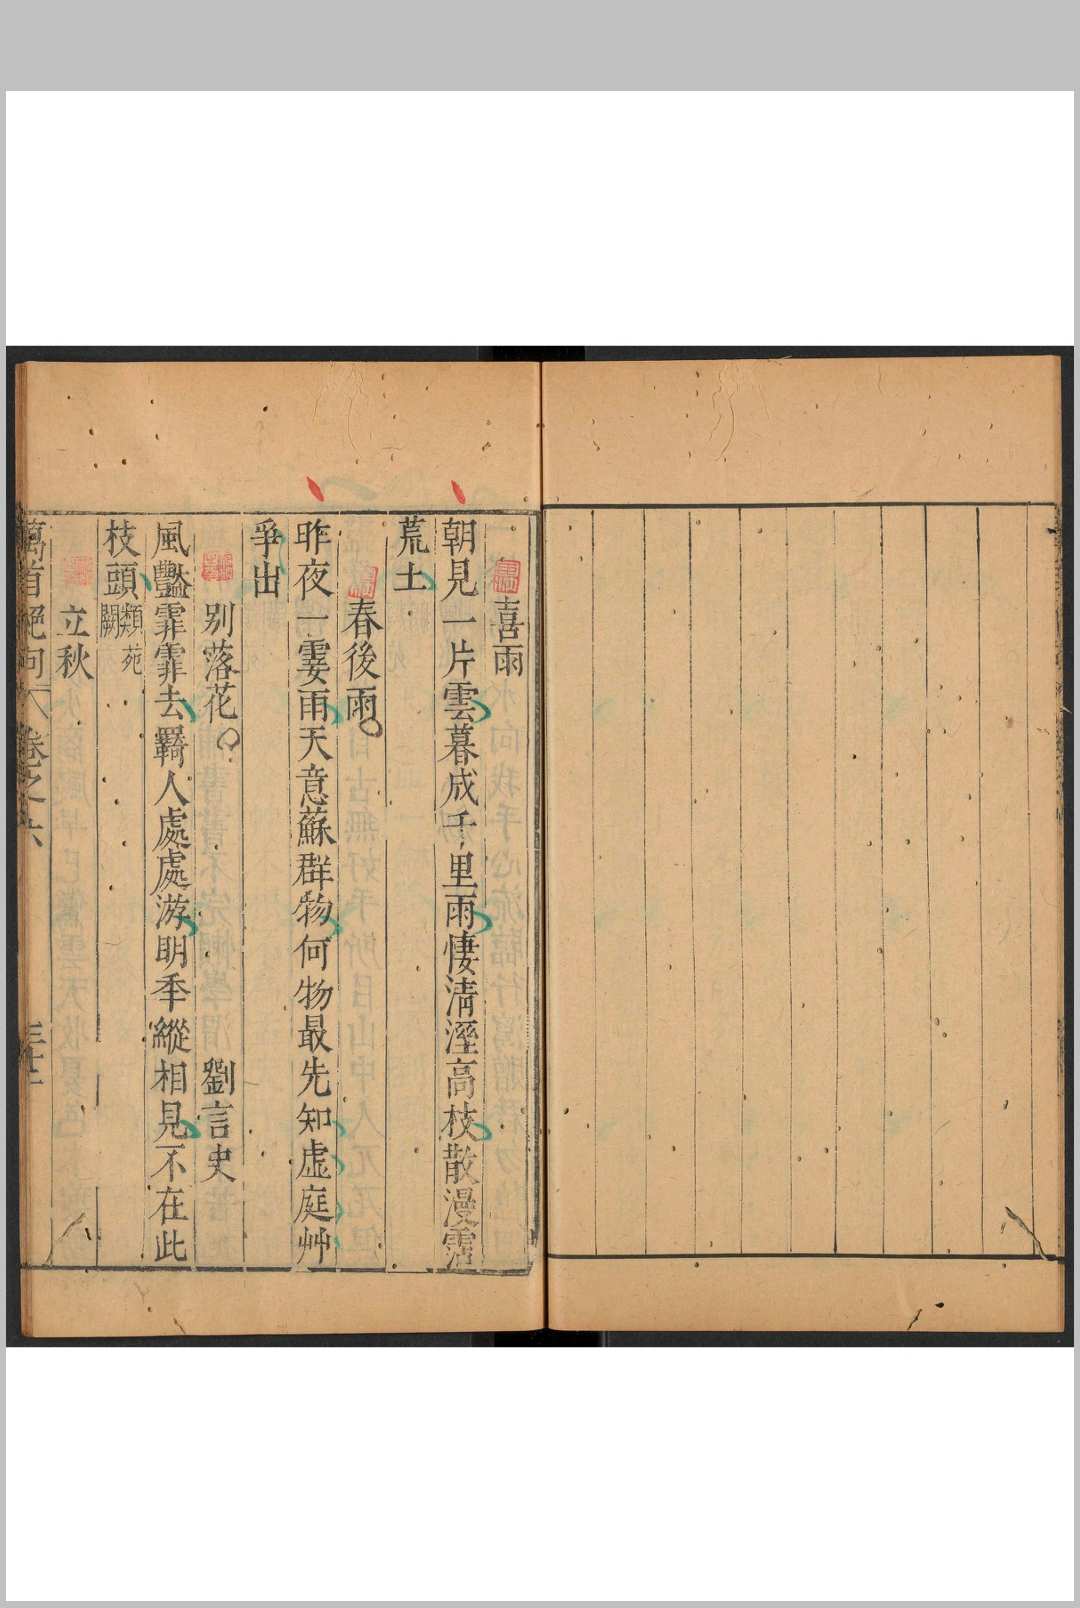 喜雨
朝見一片雲暮成千里雨悽清溼高枝散漫霑
荒土
春後雨
昨夜一霎雨天意蘇群物何物最先知虛庭艸
爭出
别落花 劉言史
風豔霏霏去羇人處處游明秊縱相見不在此
枝頭類苑闕
立秋
萬首絕句 卷之六